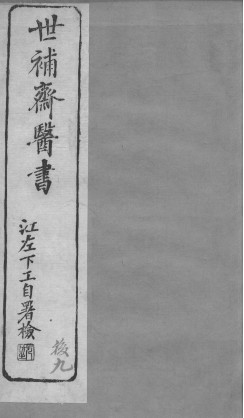 世補齋醫書
江左下工自署檢
後九